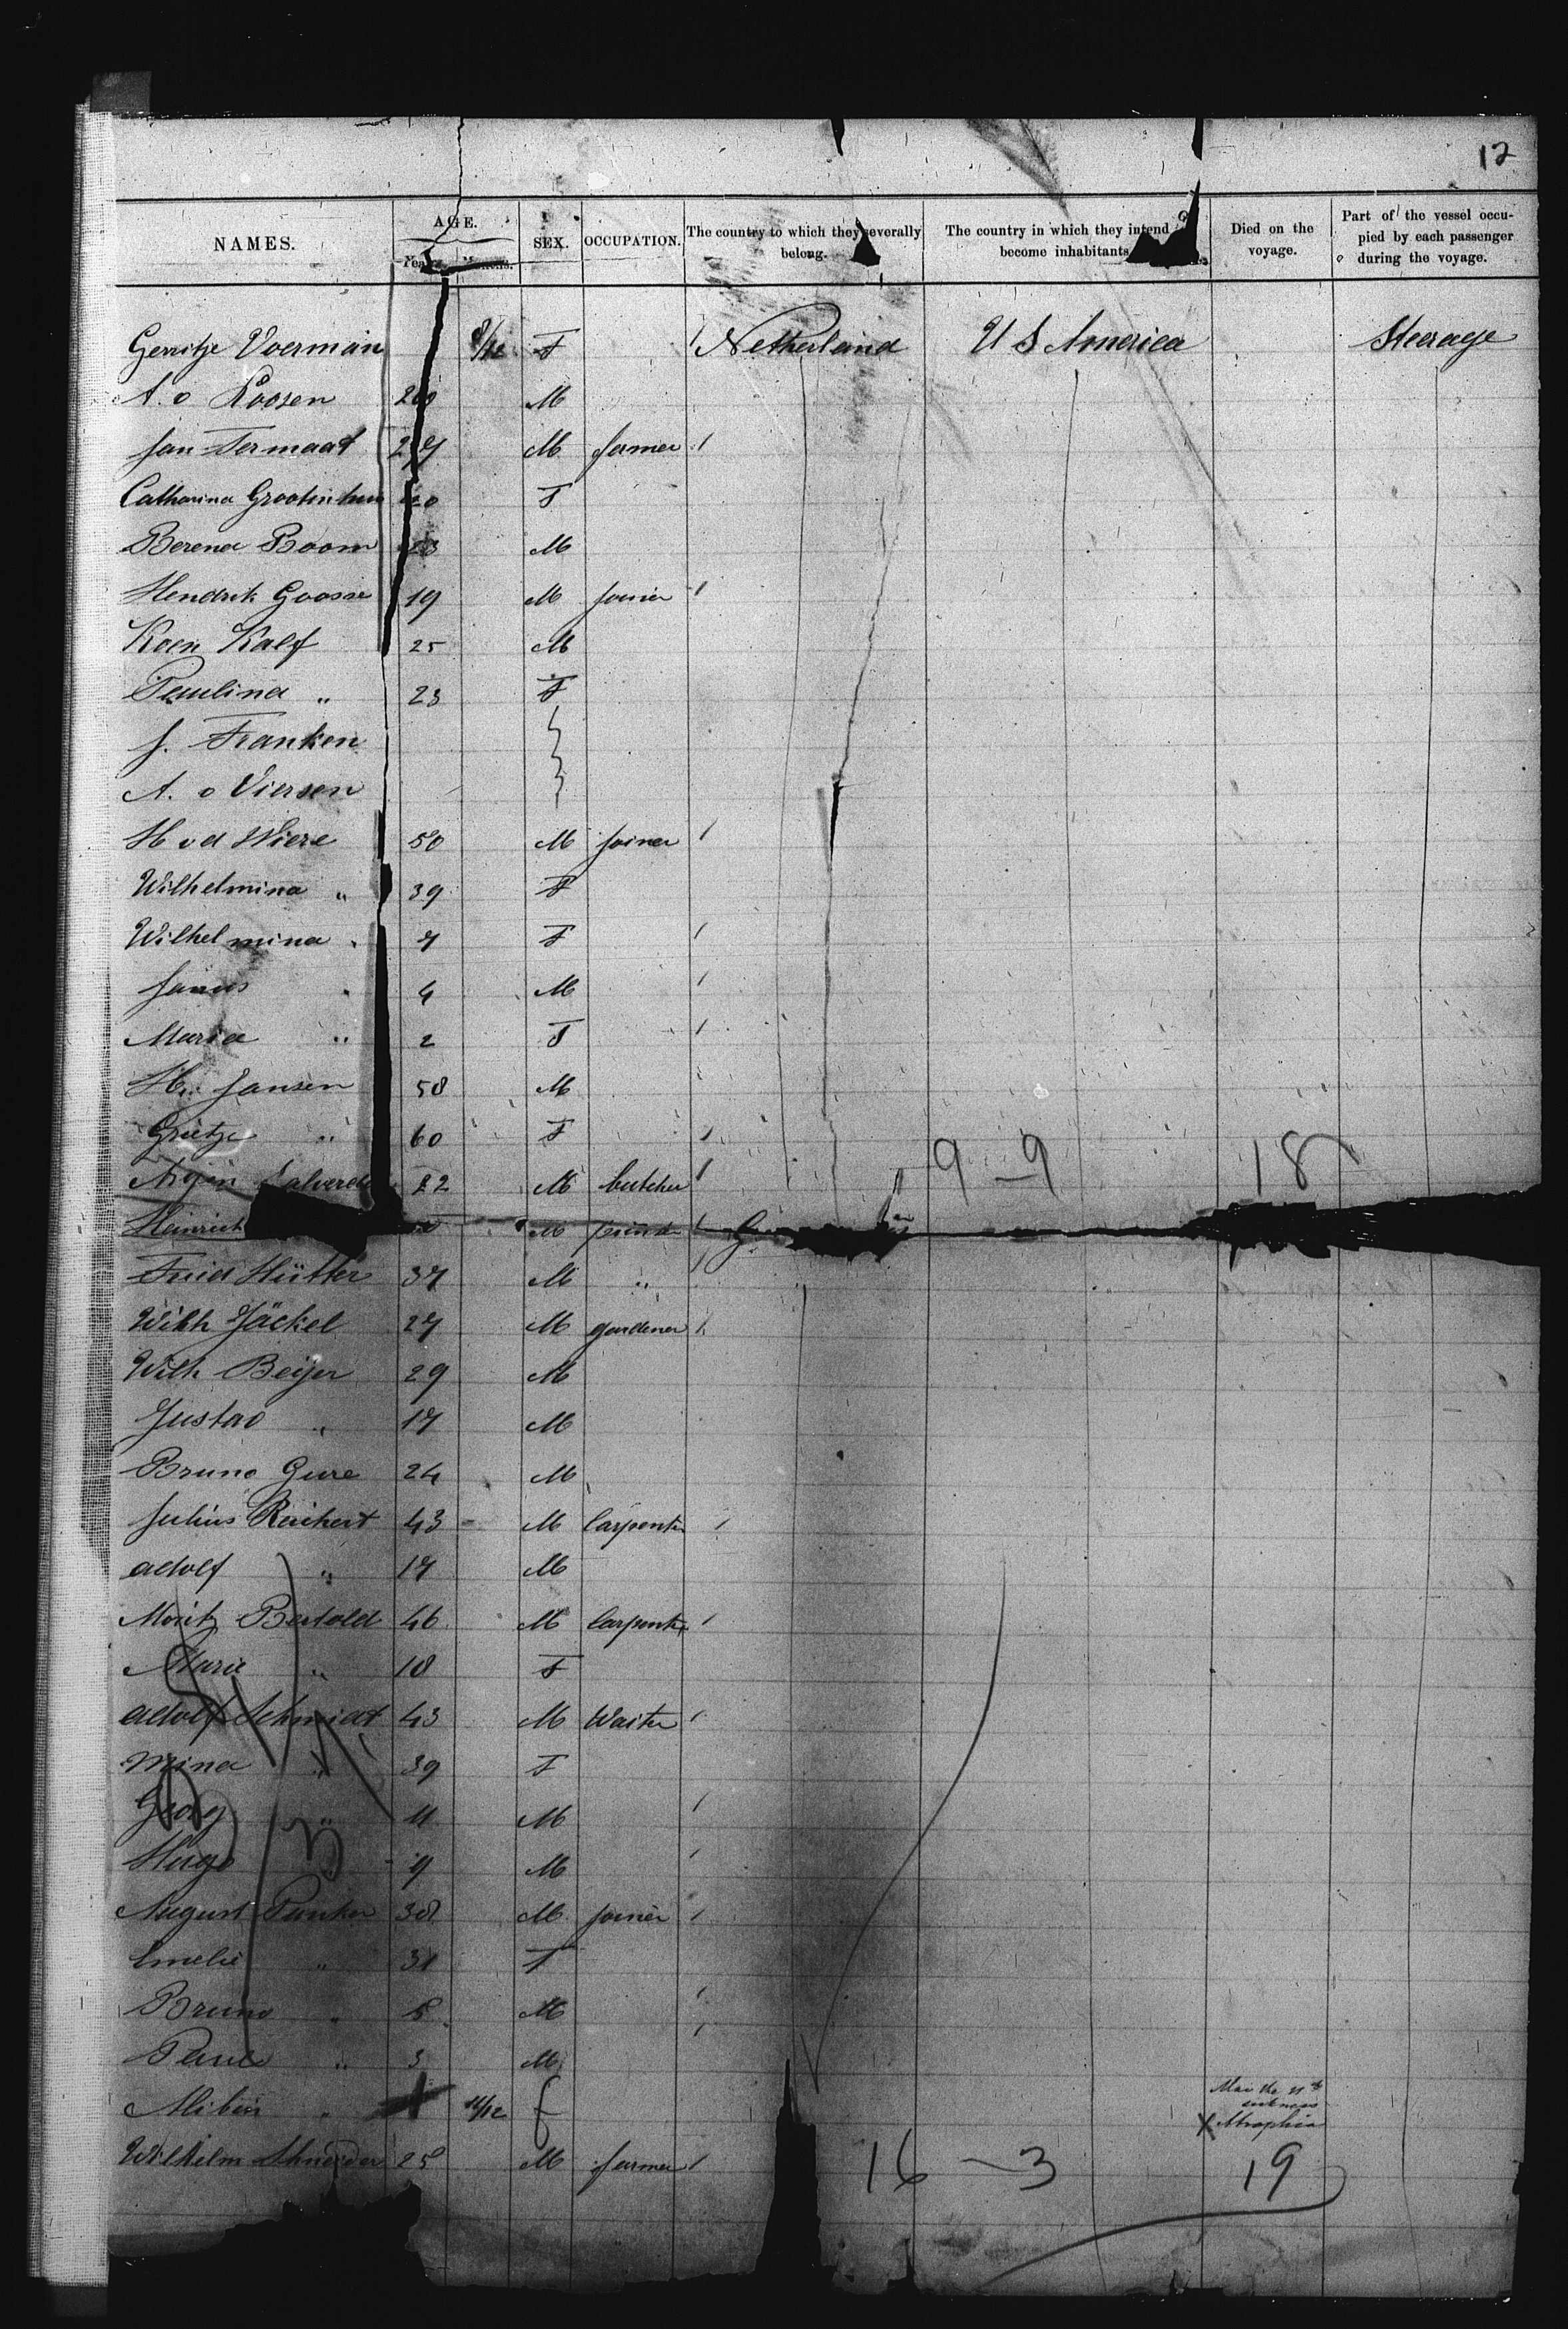 12
NAMES. AGE. SEX. OCCUPATION. The country to which they severally belong. The country in which they intend become inhabitants Died on the voyage. Part of the vessel occupied by each passenger during the voyage.
Years Months.
Gerritje Voerman 8/12 F Netherland U S America Steerage
A. v Roosen 20 M
Jan Termaat 27 M farmer
Catharina 20 F
Berend Boom 23 M
Hendrik Goosse 19 M joiner
Koen Kalf 25 M
Paulina " 23 F
J. Franken
A. v Viersen
H v d Wiere 50 M joiner
Wilhelmina " 39 F
Wilhelmina " 7 F
4 M
Maria " 2 F
H. Jansen 58 M
Grietje " 60 F
22 M butcher 9 - 9 18
Heinrich M
Fried Hütter 37 M "
Wilh Jäckel 27 M gardener
Wilh Beijer 29 M
Gustav " 17 M
Bruno Gure 24 M
Julius Reichert 43 M Carpenter
Adolf " 17 M
Moritz Bertold 46 M Carpenter
Marie " 18 F
Adolf Schmidt 43 M Waiter
Mina " 39 F
Georg " 11 M
Hugo 9 M
August Punker 38 M joiner
Emelie " 31 F
Bruno " 5 M
Paul " 3 M
" 11/12 f X Atrophia
Wilhelm Schneider 25 M farmer 16 - 3 19